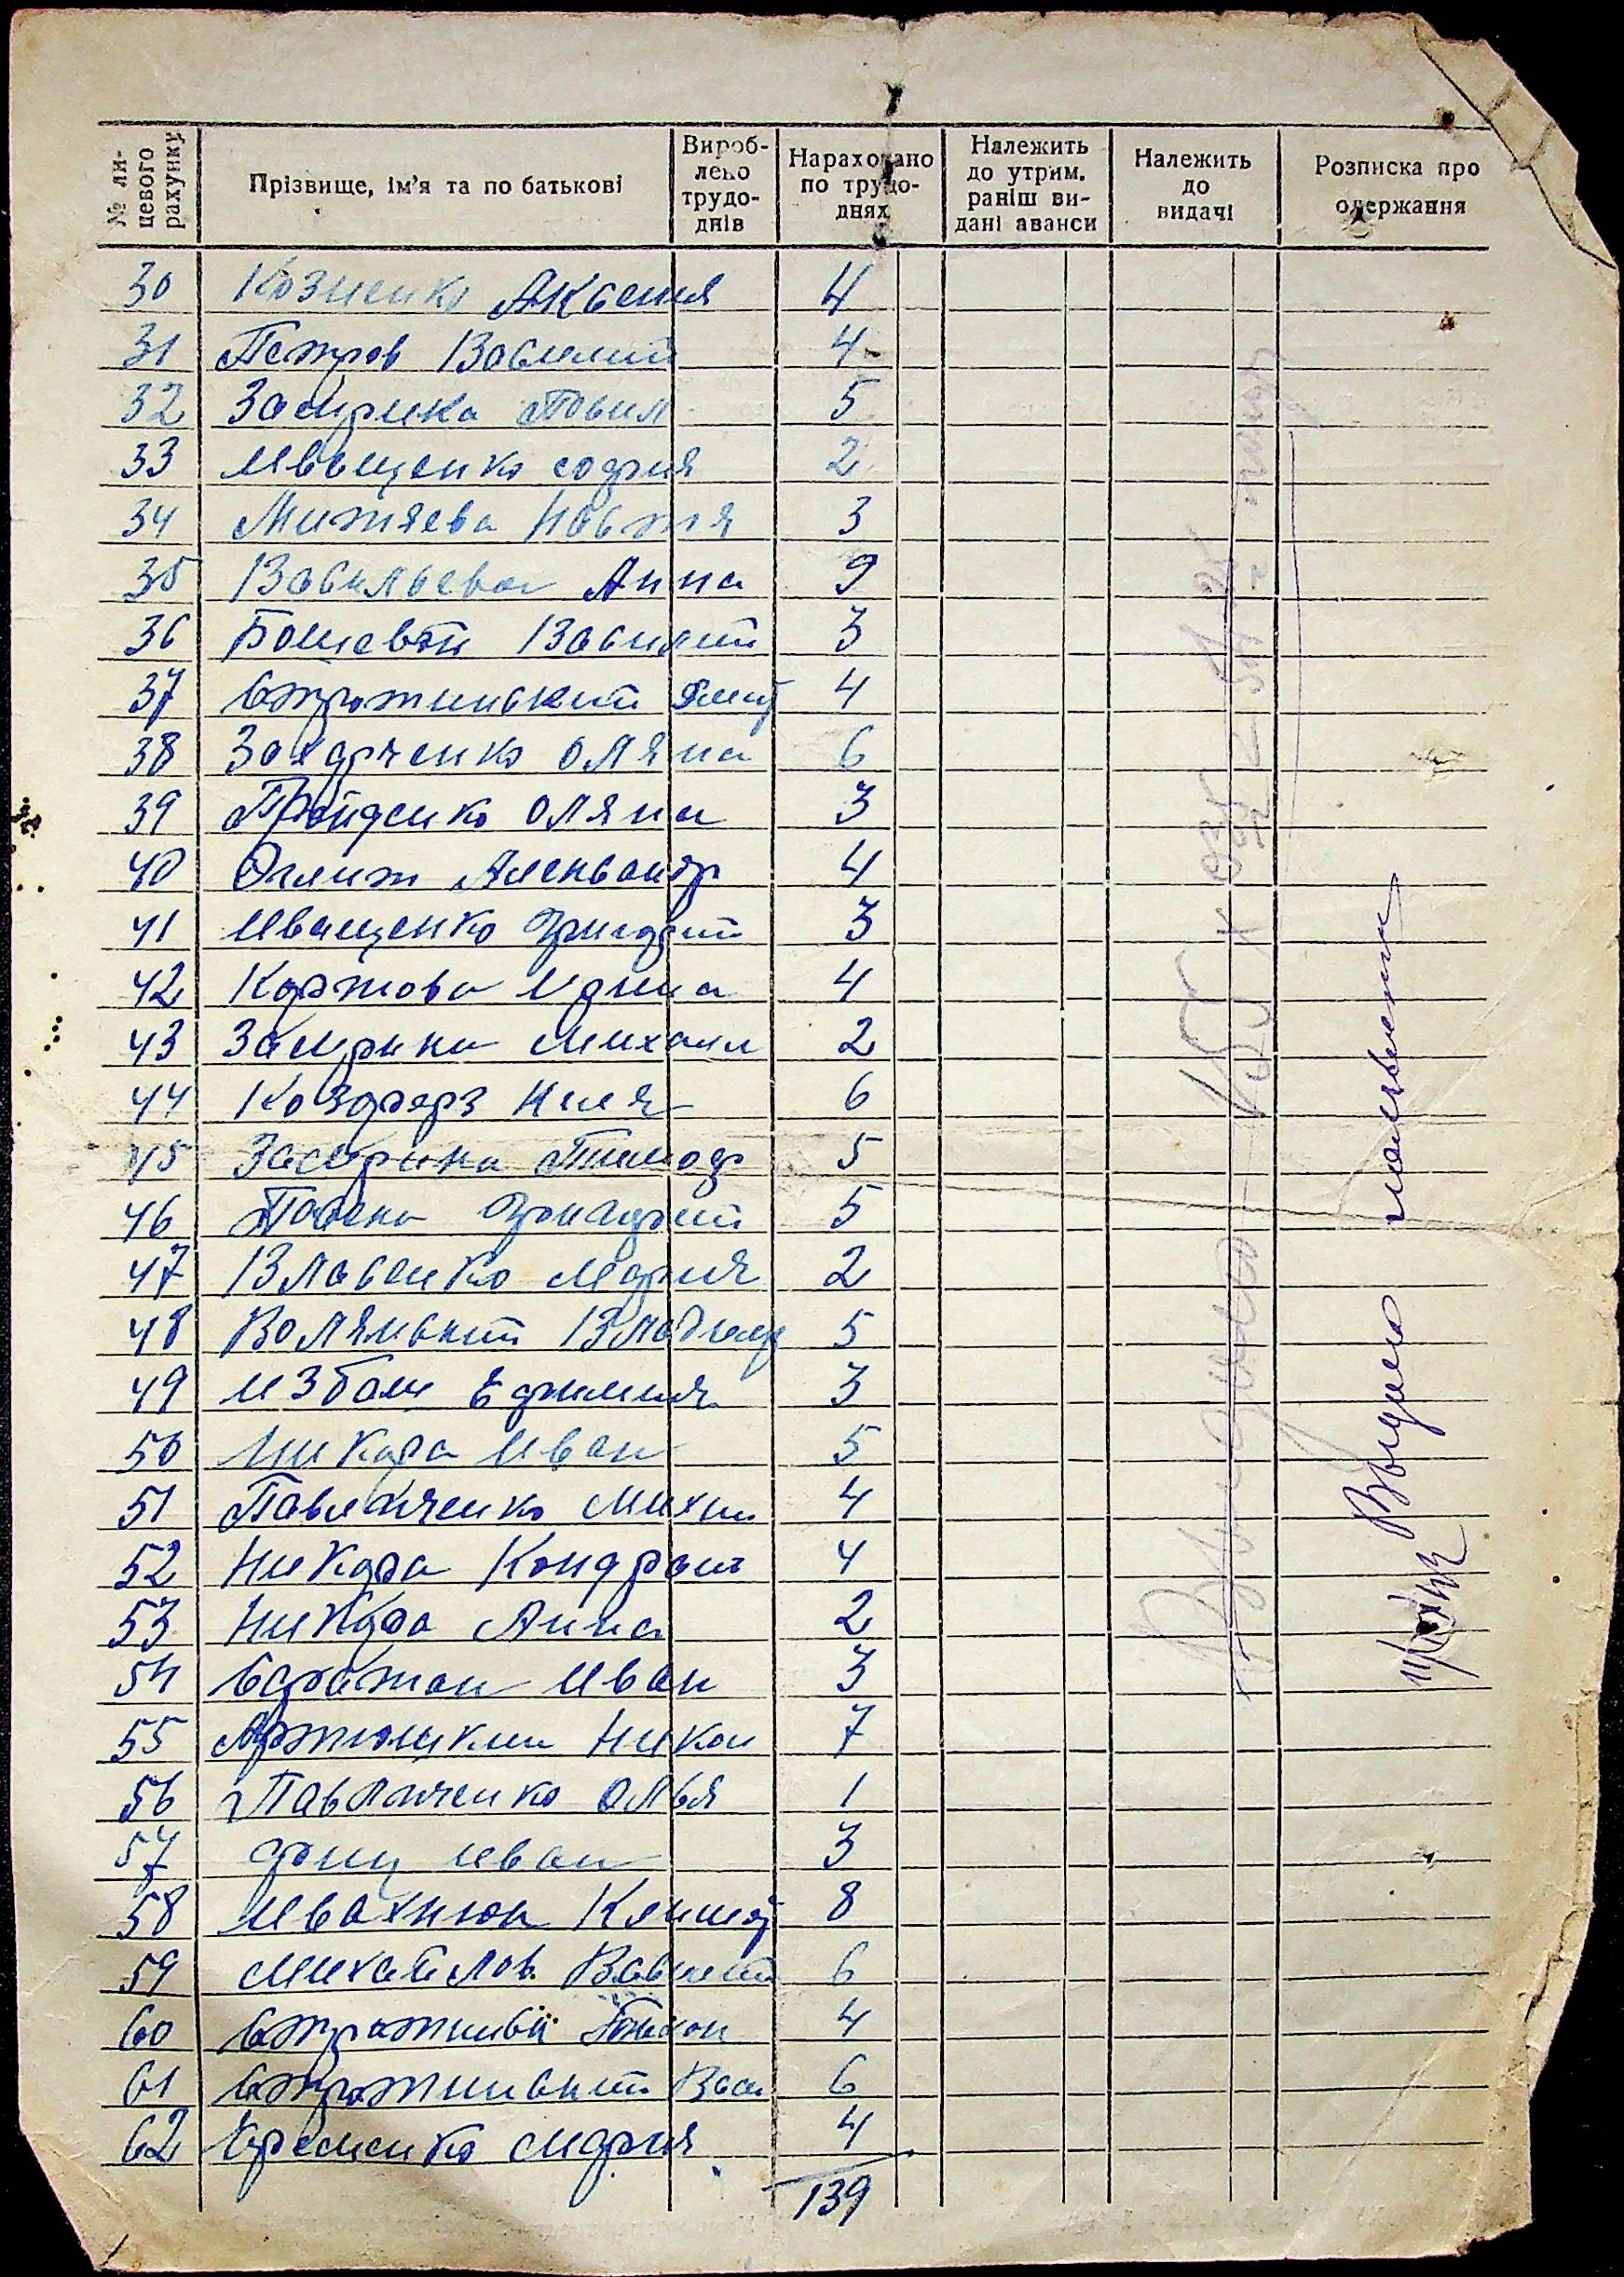 № ли-
цевого
рахунку
Прізвище, ім'я та по батькові
Вироб-
лено
трудо-
днів
Нараховано
по трудо-
днях
Належить
до утрим.
раніш ви-
дані аванси
Належить
до
видачі
Розписка про
одержання
30 Козненко Аксения 4
31 Петров Василий 4
32 Заирика Павил 5
33 Иващенко софия 2
34 Митяева Настя 3
35 Васильева Анна 9
36 Василий 3
37 Стротинский 4
38 Захарченко Оляна 6
39 Оляна 3
40 Александр 4
41 Иващенко Григорий 3
42 Картова Ирина 4
43 Заирика Михаил 2
44 6
45 Тимоф 5
46 Григорий 5
47 Власенко Мария 2
48 Волянский Владимир 5
49 Избаш Ефимия 3
50 Никора Иван 5
51 Павличенко Михаил 4
52 Никора Кондрат 4
53 Никора Анна 2
54 Саратан Иван 3
55 Артюшкин Никол 7
56 Павличенко Олья 1
57 Фриц Иван 3
58 Ивахнюк 8
59 Михайлов Василий 6
60 4
61 Стротинский Вас 6
62 Ефременко Мария 4
139